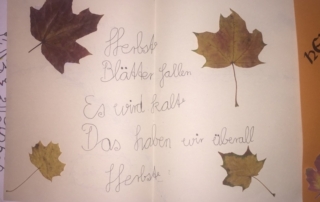 Herbst
Blätter fallen
Es wird kalt
Das haben wir überall
Herbst!